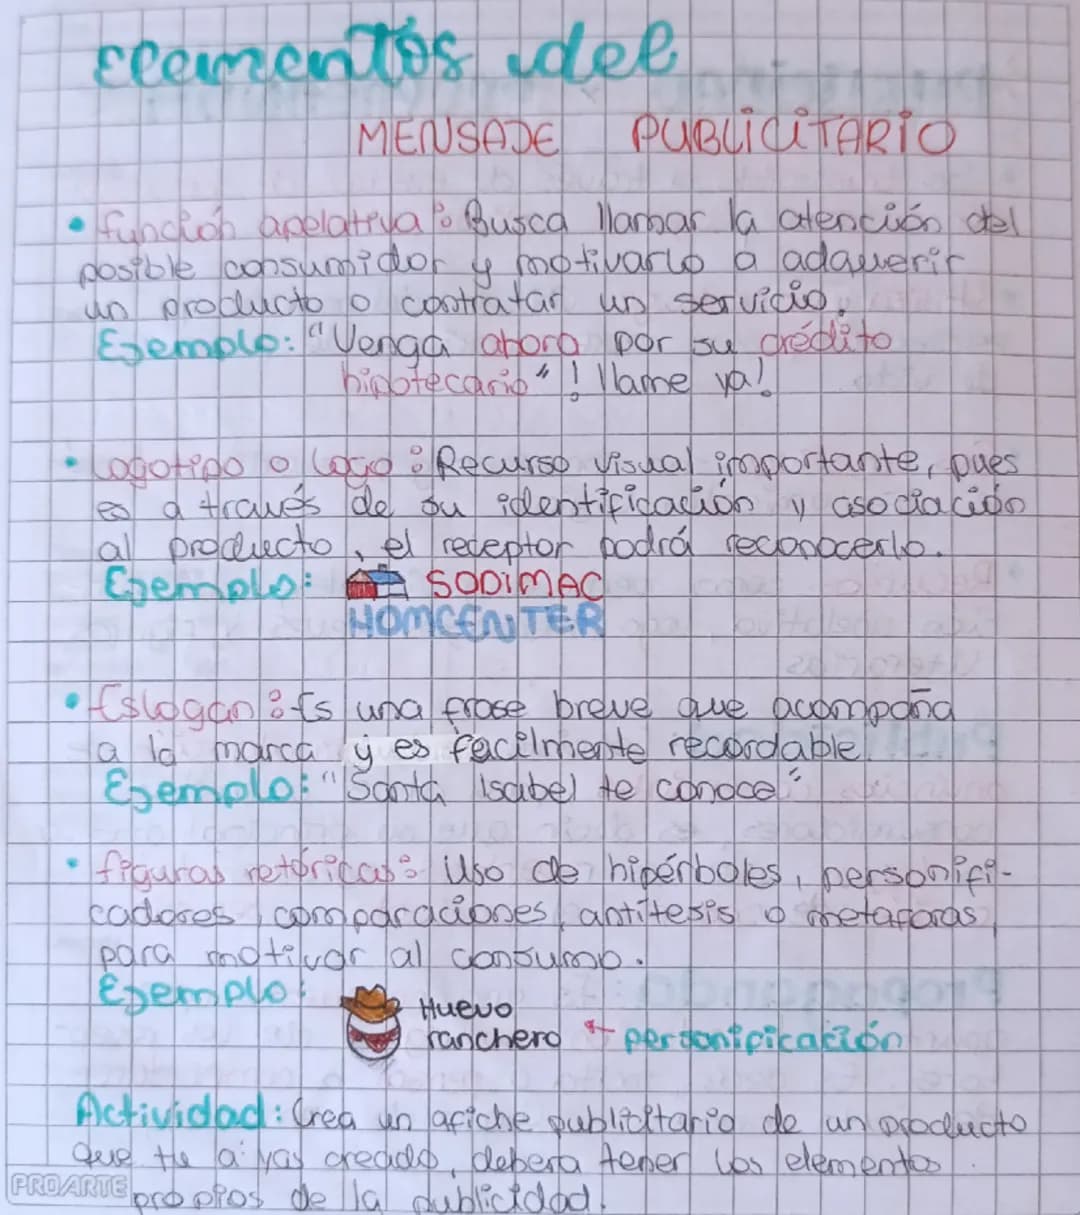 Elementos del
MENSAJE PUBLICITARIO
• función apelativa: Busca llamar la atención del
posible consumidor y motivarlo a adquerir
un producto o contratar un servicio.
Ejemplo: "Venga ahora por su crédito
hipotecario" ! llame ya!
• Logotipo o logo: Recurso visual importante, pues
es a través de su identificación y asociación
al producto, el receptor podrá reconocerlo.
Ejemplo: SODIMAC
HOMCENTER
• Eslogan: Es una frase breve que acompaña
a la marca y es facilmente recordable.
Ejemplo: "Santa Isabel te conoce"
• figuras retóricas: Uso de hipérboles, personifi-
cadores, comparaciones, antítesis o metaforas,
para motivar al consumo.
Ejemplo:
Huevo
ranchero ← personificación
Actividad: Crea un afiche publicitario de un producto
que tu a yas creado, debera tener los elementos
PROARTE
propios de la publicidad.